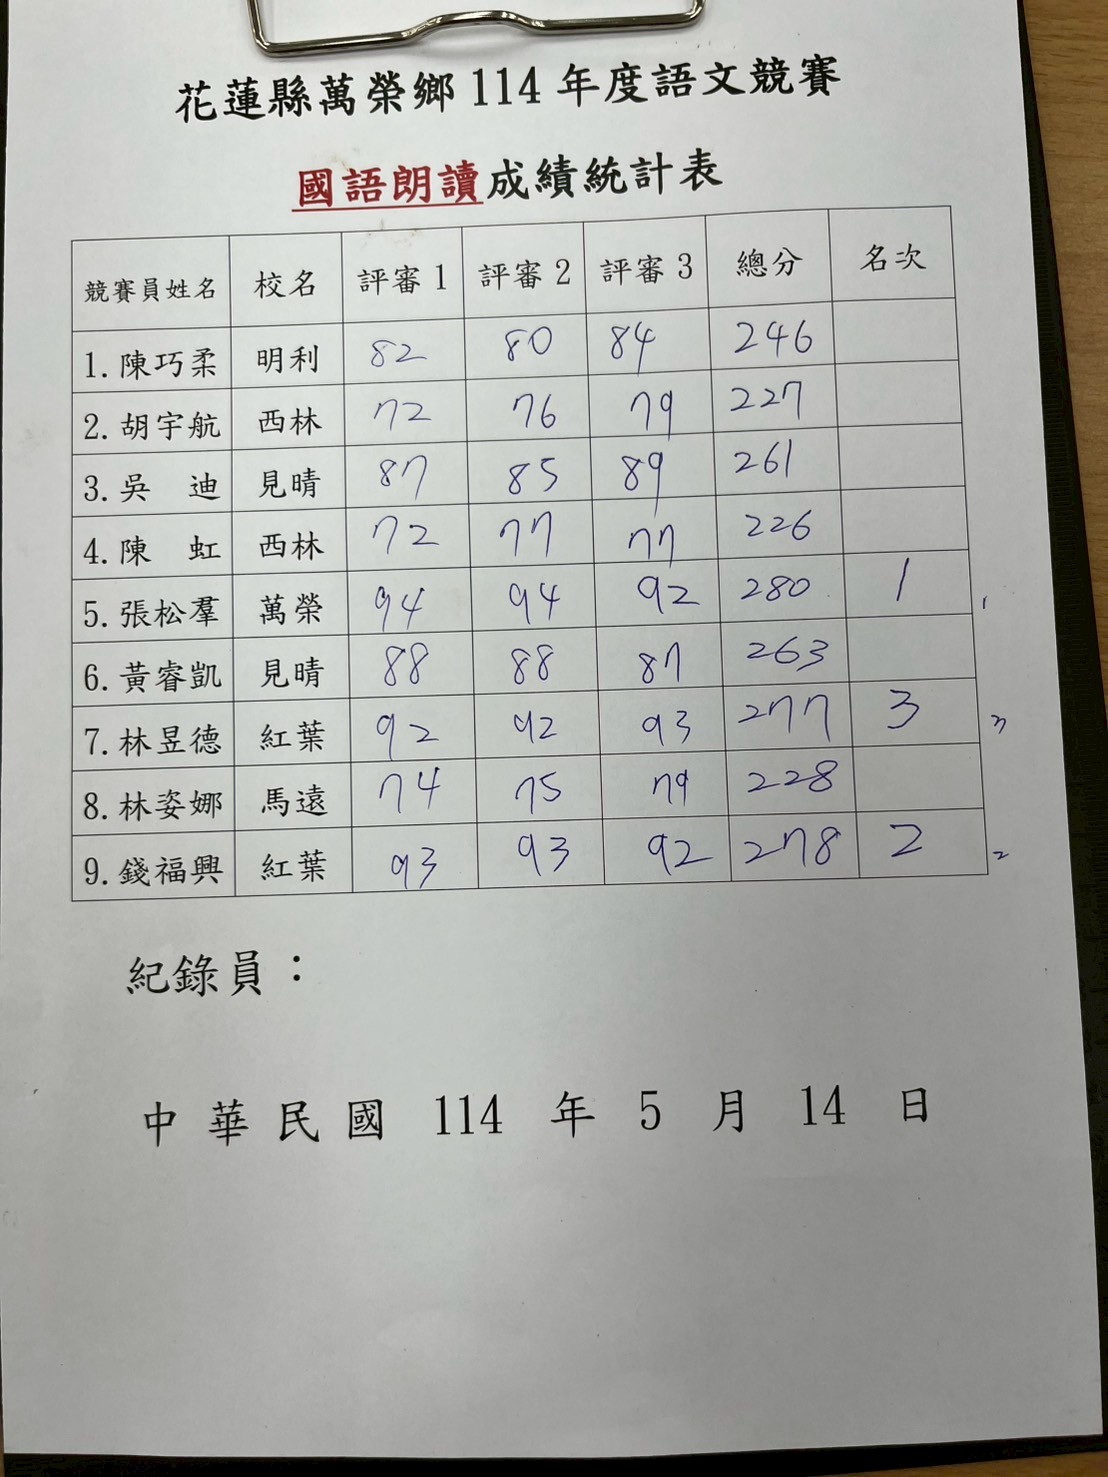 花蓮縣萬榮鄉 114 年度語文競賽
國語朗讀成績統計表
競賽員姓名 校名 評審 1 評審 2 評審 3 總分 名次
1. 陳巧柔 明利 82 80 84 246
2. 胡宇航 西林 72 76 79 227
3. 吳 迪 見晴 87 85 89 261
4. 陳 虹 西林 72 77 77 226
5. 張松羣 萬榮 94 94 92 280 1 1
6. 黃睿凱 見晴 88 88 87 263
7. 林昱德 紅葉 92 92 93 277 3 3
8. 林姿娜 馬遠 74 75 79 228
9. 錢福興 紅葉 93 93 92 278 2 2
紀錄員：
中 華 民 國 114 年 5 月 14 日